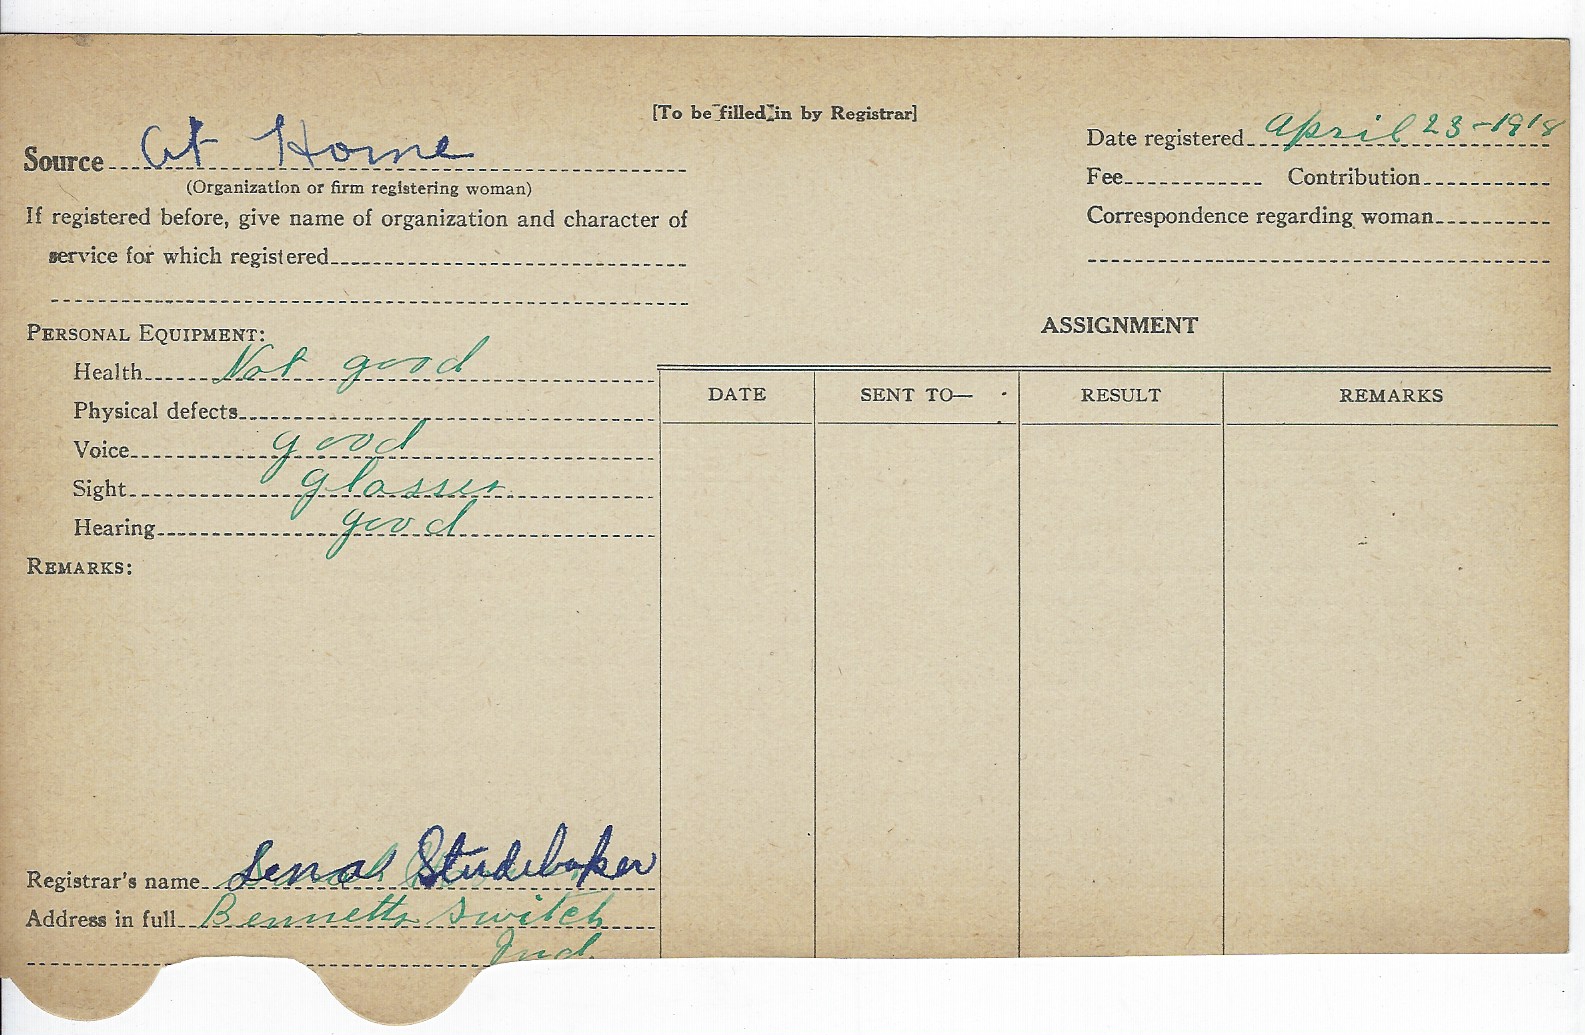 [To be filled in by Registrar]
Source At Home
(Organization or firm registering woman)
If registered before, give name of organization and character of
service for which registered
Date registered April 23-1918
Fee Contribution
Correspondence regarding woman
PERSONAL EQUIPMENT:
Health Not good
Physical defects
Voice good
Sight glasses
Hearing good
REMARKS:
ASSIGNMENT
DATE SENT TO— RESULT REMARKS
Registrar's name Lena Studebaker
Address in full Bennetts Switch
Ind.